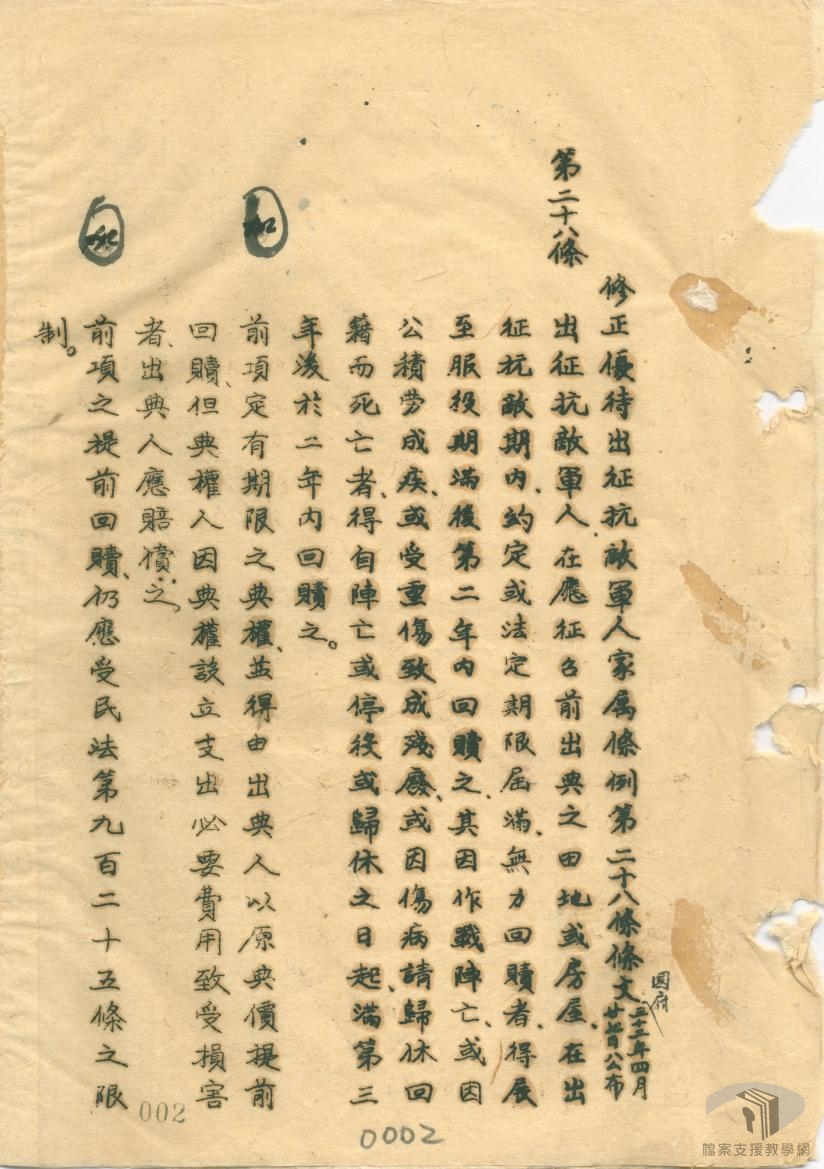 修正優待出征抗敵軍人家屬條例第二十八條條文 國府三十三年四月廿七日公布
第二十八條 出征抗敵軍人、在應征召前出典之田地或房屋、在出
征抗敵期內、約定或法定期限屆滿、無力回贖者、得展
至服役期滿後第二年內回贖之、其因作戰陣亡、或因
公積勞成疾、或受重傷致成殘廢、或因傷病請歸休回
籍而死亡者、得自陣亡或停役或歸休之日起、滿第三
年後於二年內回贖之。
前項定有期限之典權、並得由出典人以原典價提前
回贖、但典權人因典權設立支出必要費用致受損害
者、出典人應賠償之。
前項之提前回贖、仍應受民法第九百二十五條之限
制。
002
0002
檔案支援教學網